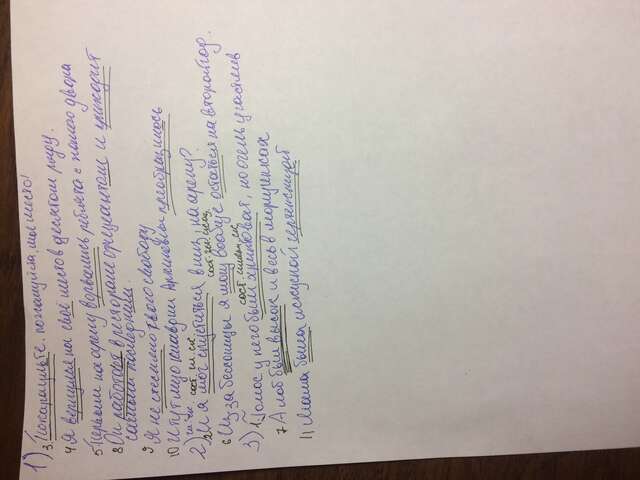 1) 3. Покараульте, пожалуйста, мое место!
4 Я вернулся на своё место в десятом ряду.
5 Первыми на арену ворвались ребята с нашего двора
8 Он работает в ресторане официантом и приходит
самым последним.
9 Я не стесняю твою свободу
10 И тут лицо Клавдии преобразилось
2) сост. гл. ск.
2 И я мог спуститься вниз, на арену?
6 Из за бессоницы я могу вообще остаться на второй год.
3) 1 Голос у него был хрипловат, но очень участлив
7 А лоб был высок и весь в морщинках
11 Мама была искусной